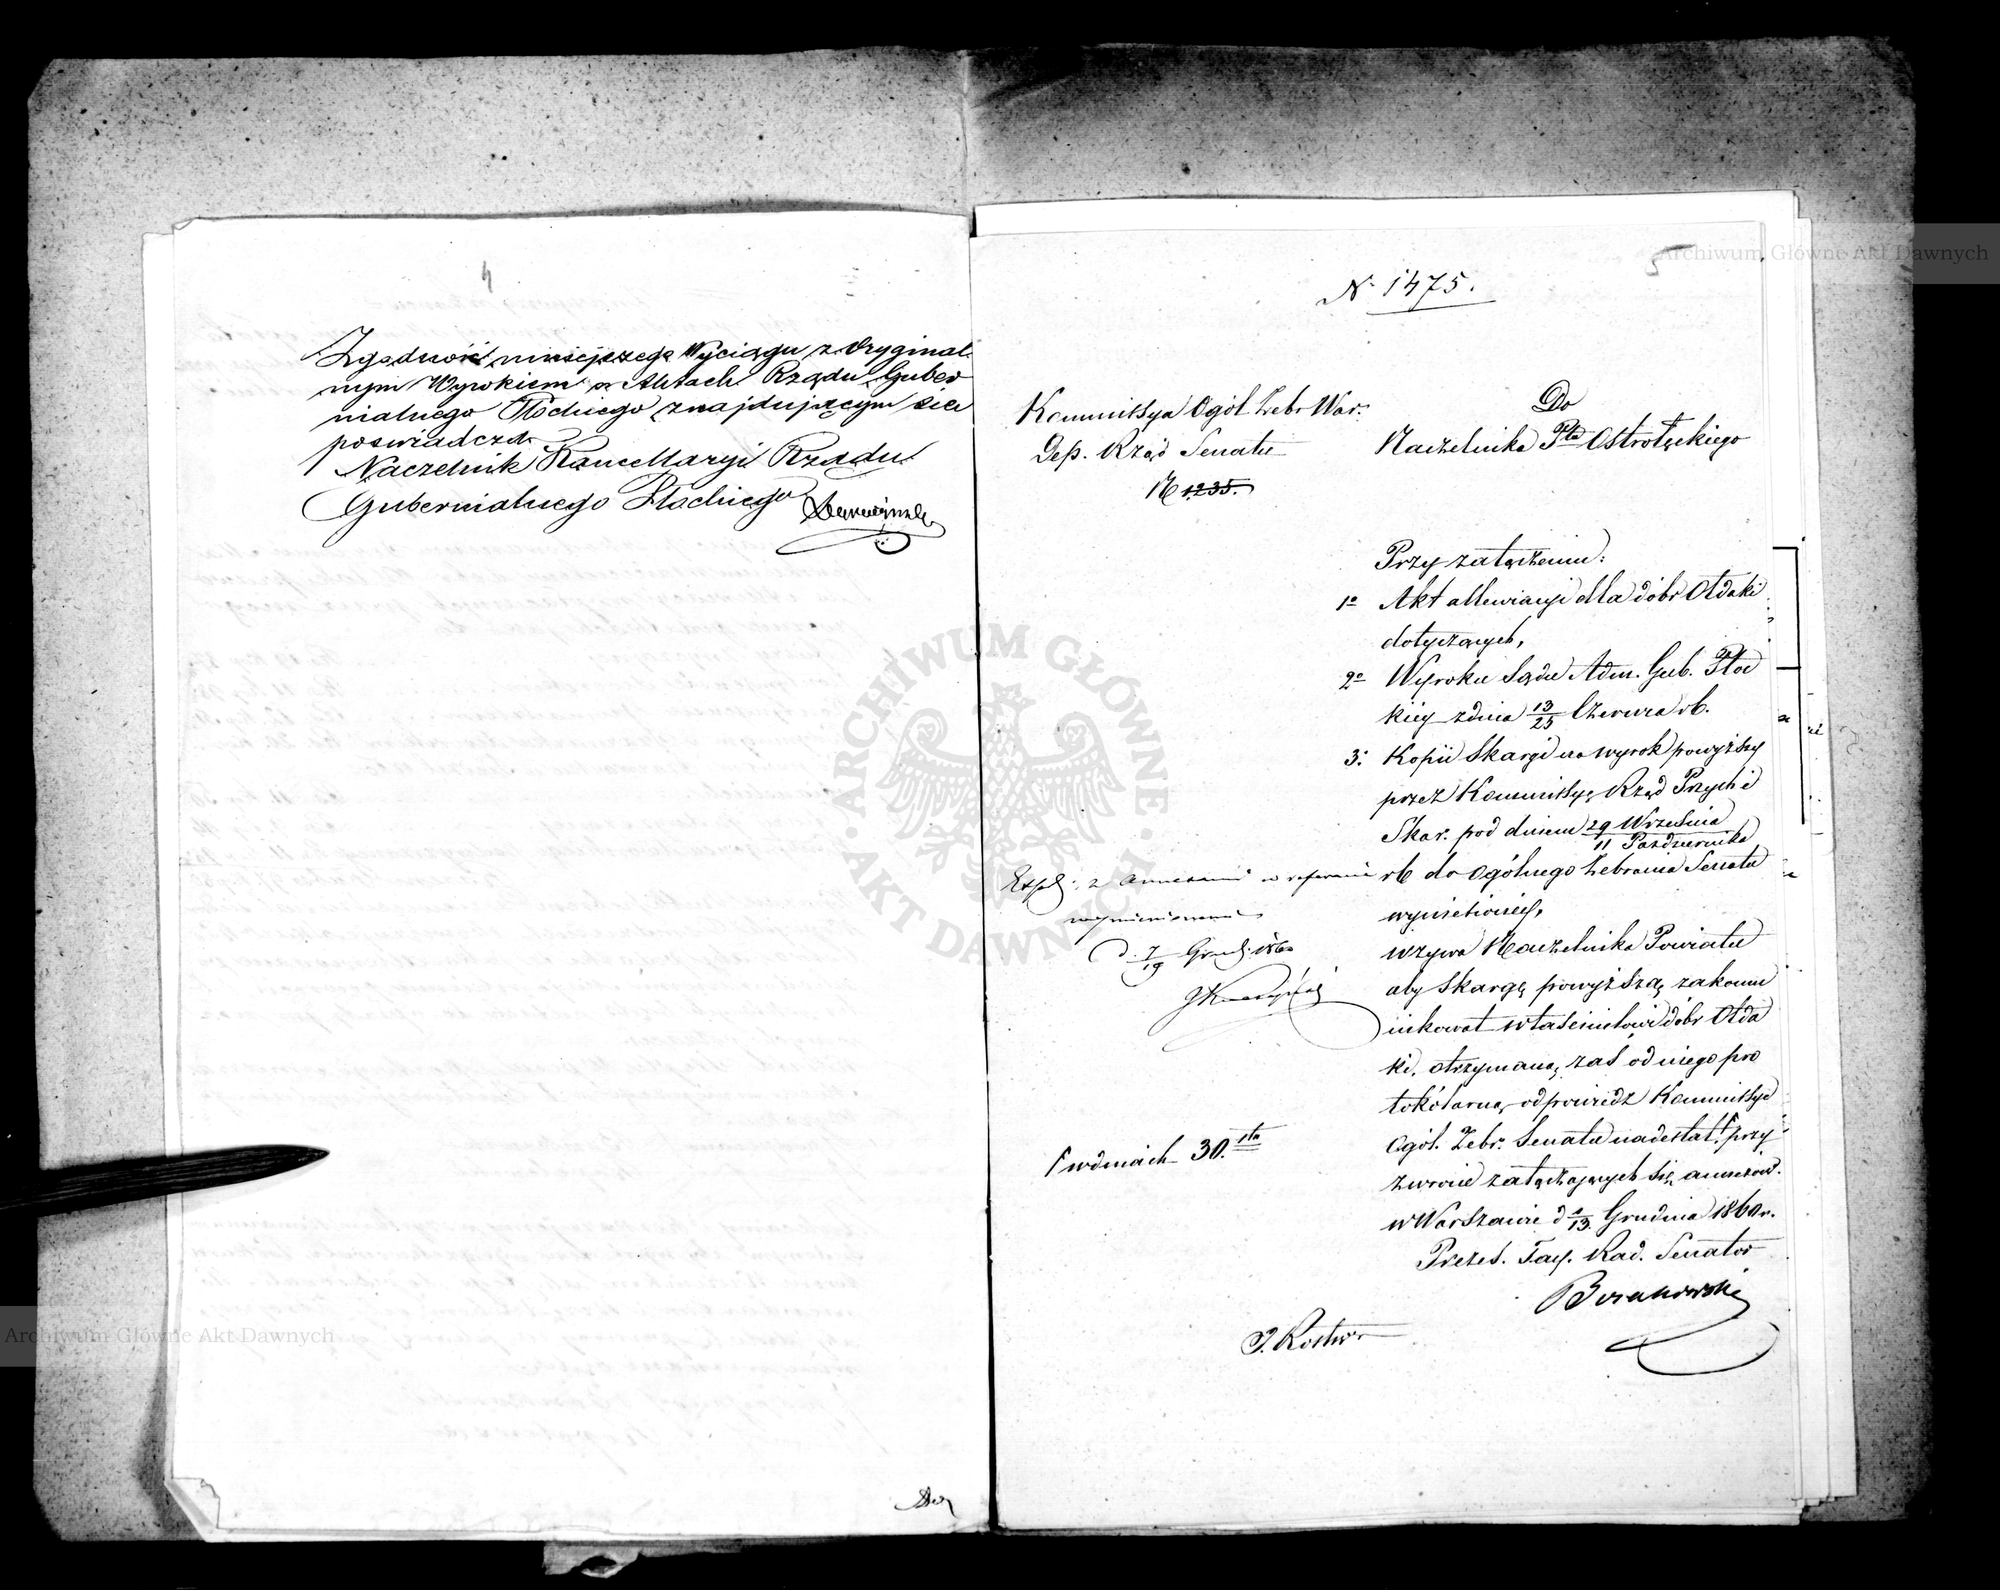 4
Zgodność niniejszego Wyciągu z Oryginal-
nym Wyrokiem w Aktach Rządu Guber
nialnego Płockiego znajdującym się
poświadcza.
Naczelnik Kancellaryi Rządu
Gubernialnego Płockiego
5
№ 1475.
Kommissya Ogól. Zebr. War:
Dep. Rząd Senatu
N 1235.
Do
Naczelnika Ptu Ostrołęckiego
Przy załączeniu:
1o Akt allewiacyi dla dóbr Ołdaki
dotyczących,
2o Wyroku Sądu Adm. Gub. Płoc
kiey z dnia 13/25 Czerwca rb.
3: Kopii Skargi na wyrok powyższy
przez Kommissyę Rząd Przych i
Skar. pod dniem 29 Września / 11 Października
rb do Ogólnego Zebrania Senatu
wyniesioney,
wzywa Naczelnika Powiatu
aby Skargę powyższą zakomu
nikował właścicielowi dóbr Ołda
ki, otrzymaną zaś od niego pro
tokólarną odpowiedz Kommissyi
Ogól. Zebr. Senatu nadesłał, przy
zwrocie załączających się annexów.
w Warszawie d 1/13 Grudnia 1860 r.
Prezes. Tay. Rad. Senator
Exp: z Annexami w referacie
wymienionemi
d. 7/19 Grud. 1860
w dniach 30.stu
ARCHIWUM GŁÓWNE
AKT DAWNYCH
Archiwum Główne Akt Dawnych
Archiwum Główne Akt Dawnych